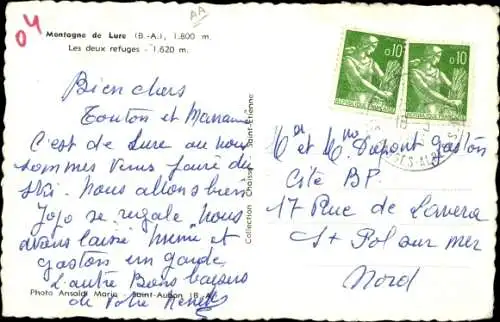 04
AA
Montagne de Lure (B.-A.), 1.800 m.
Les deux refuges - 1.620 m.
Bien chers
Tonton et
C'est de Lure ou nous
sommes venus faire du
ski. Nous allons bien
Jojo se régale. Nous
avons laissé mimi et
gaston en garde
L'autre Bons baisers
de Votre
Photo Ansaldi Marie - Saint-Auban (B.-A.)
Collection Chaissac Saint-Etienne
0,10
REPUBLIQUE FRANÇAISE
0,10
et Dupont gaston
Cité BP
17 Rue de Lavera
St Pol sur mer
Nord